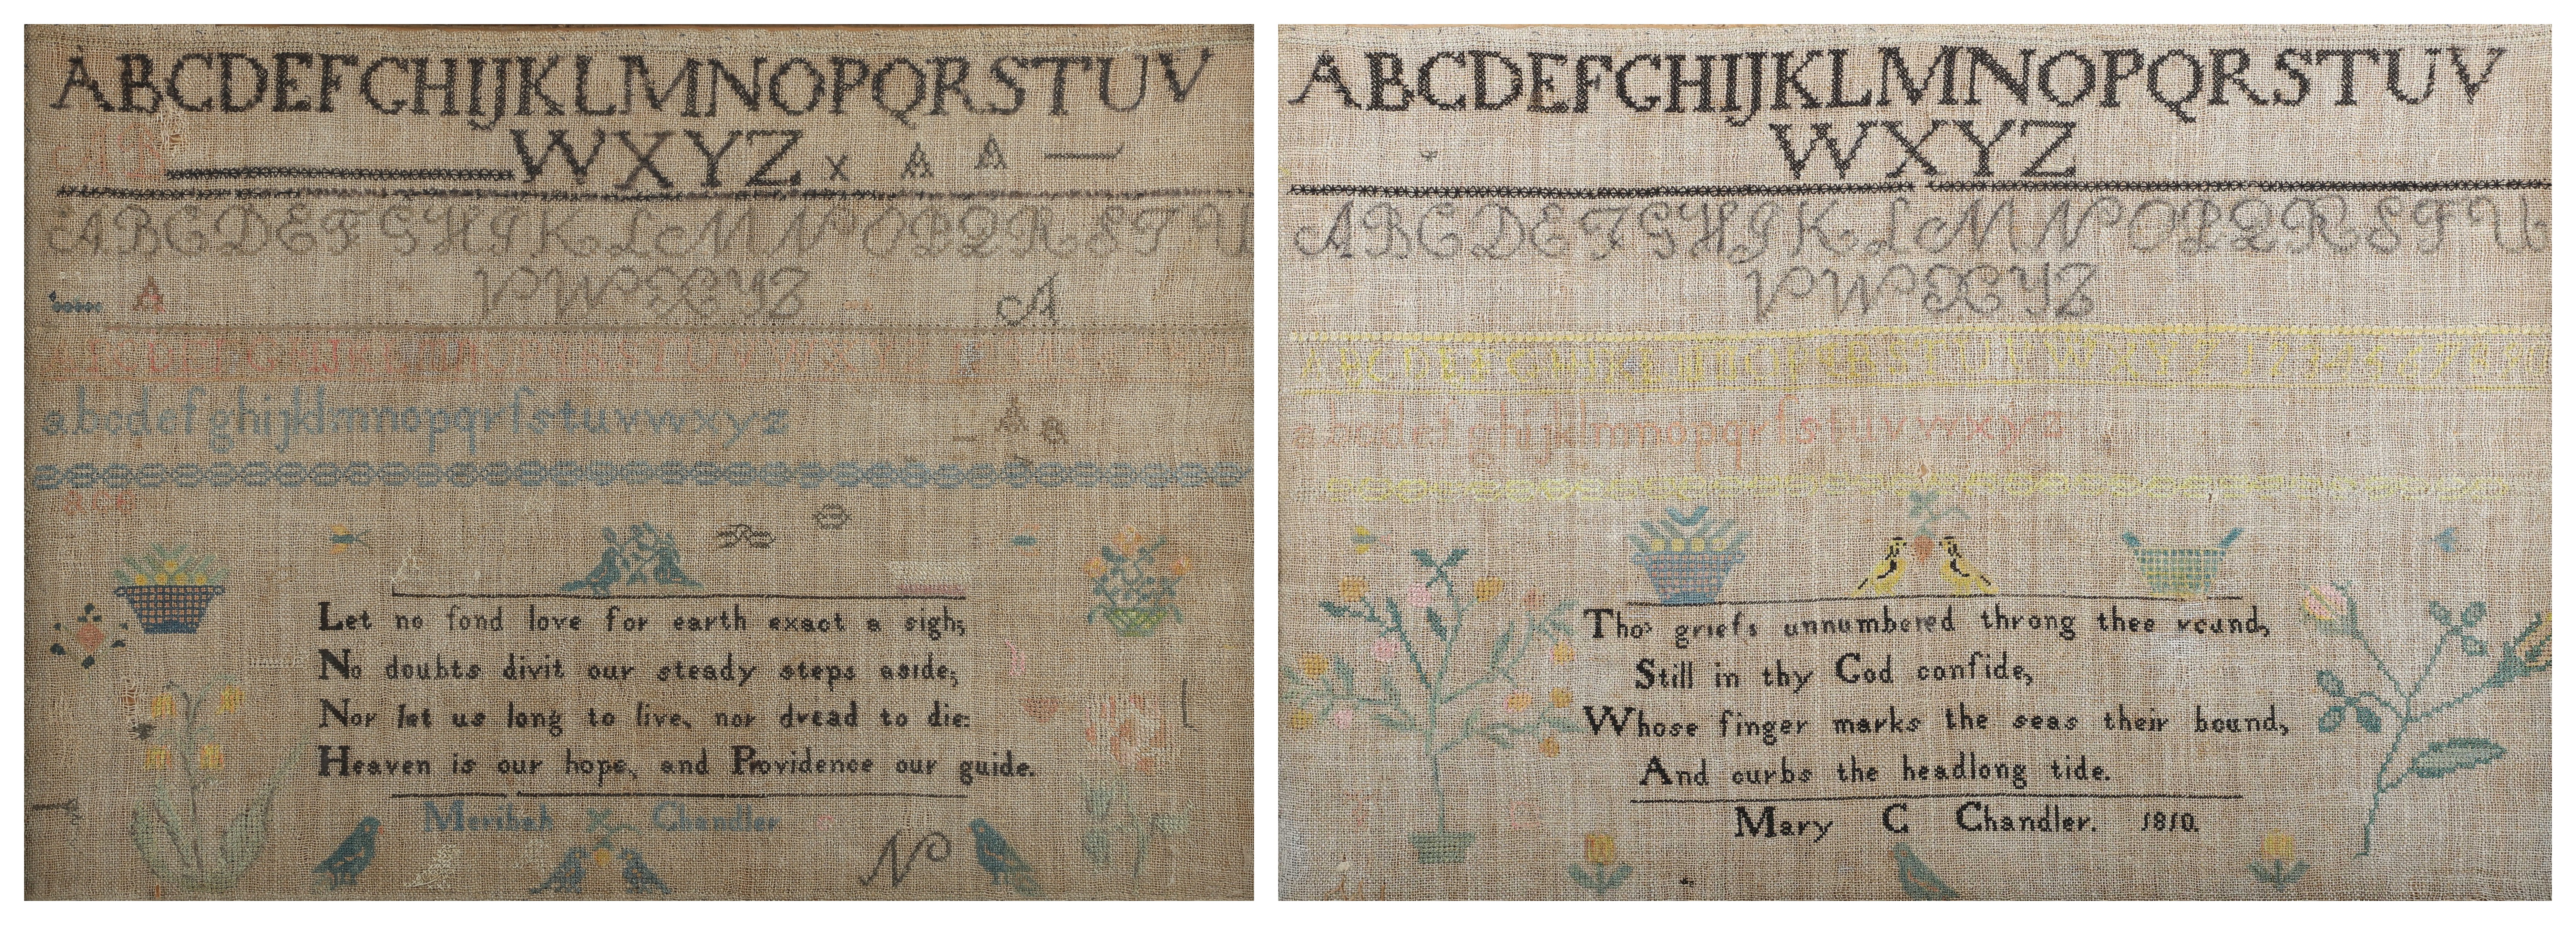 ABCDEFGHIJKLMNOPQRSTUV
AB
WXYZ x A A
ABCDEFGHIKLMNOPQRSTU
A
VWXYZ
A
abcdefghijklmnopqrſstuvwxyz
A a
ace
Let no fond love for earth exact a sigh;
No doubts divit our steady steps aside;
Nor let us long to live, nor dread to die:
Heaven is our hope, and Providence our guide.
Meribah Chandler
N
ABCDEFGHIJKLMNOPQRSTUV
WXYZ
ABCDEFGHIKLMNOPQRSTU
VWXYZ
abcdefghijklmnopqrſstuvwxyz
Tho' griefs unnumbered throng thee round,
Still in thy God confide,
Whose finger marks the seas their bound,
And curbs the headlong tide.
Mary C Chandler. 1810.